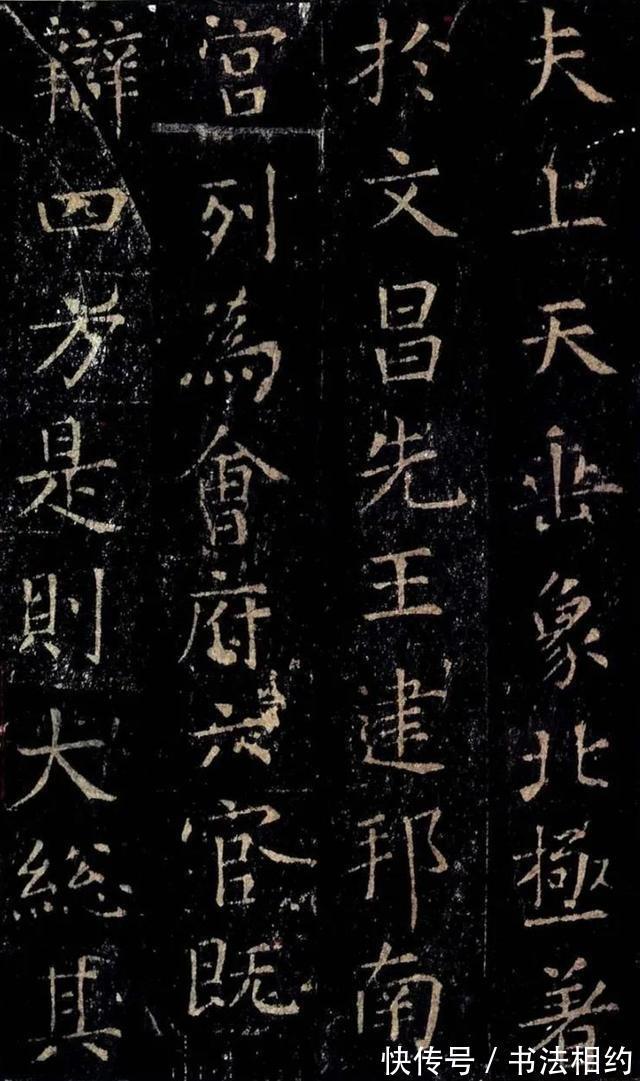 夫上天垂象北極著
於文昌先王建邦南
宫列為會府六官既
辯四方是則大總其
快传号/书法相约